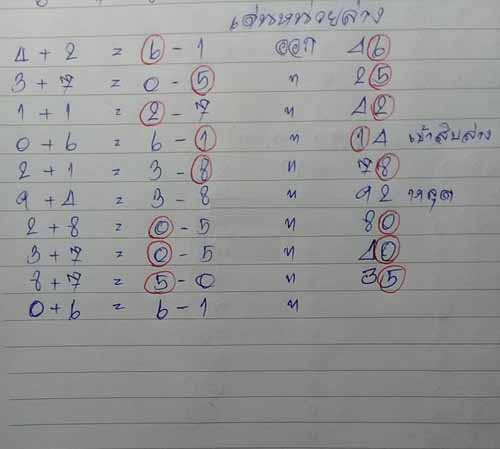 เด่นหน่วยล่าง
4 + 2 = 6 - 1 ออก 46
3 + 7 = 0 - 5 " 25
1 + 1 = 2 - 7 " 42
0 + 6 = 6 - 1 " 14 เข้าสิบล่าง
2 + 1 = 3 - 8 " 78
9 + 4 = 3 - 8 " 92 หลุด
2 + 8 = 0 - 5 " 80
3 + 7 = 0 - 5 " 40
8 + 7 = 5 - 0 " 35
0 + 6 = 6 - 1 "